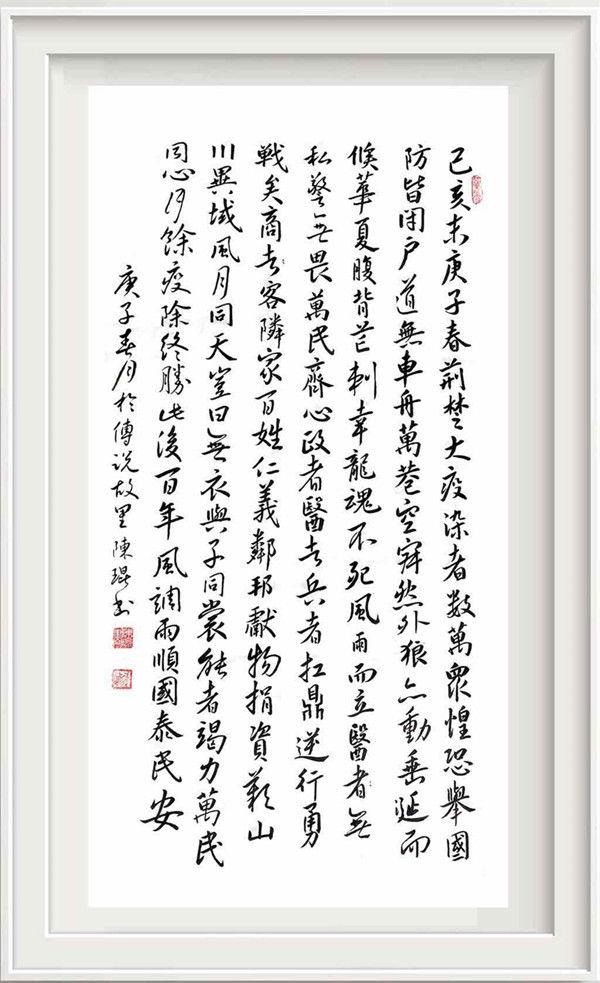 己亥末庚子春荊楚大疫染者數萬眾惶恐舉國
防皆闭户道無車舟萬巷空寂然外狼亦動垂涎而
候華夏腹背芒刺幸龍魂不死風雨而立醫者無
私警無畏萬民齊心政者醫者兵者扛鼎逆行勇
戰矣商者客隣家百姓仁義鄰邦獻物捐資歎山
川異域風月同天豈曰無衣與子同裳能者竭力萬民
同心月餘疫除終勝此後百年風調雨順國泰民安
庚子春月於傅说故里陳琨书